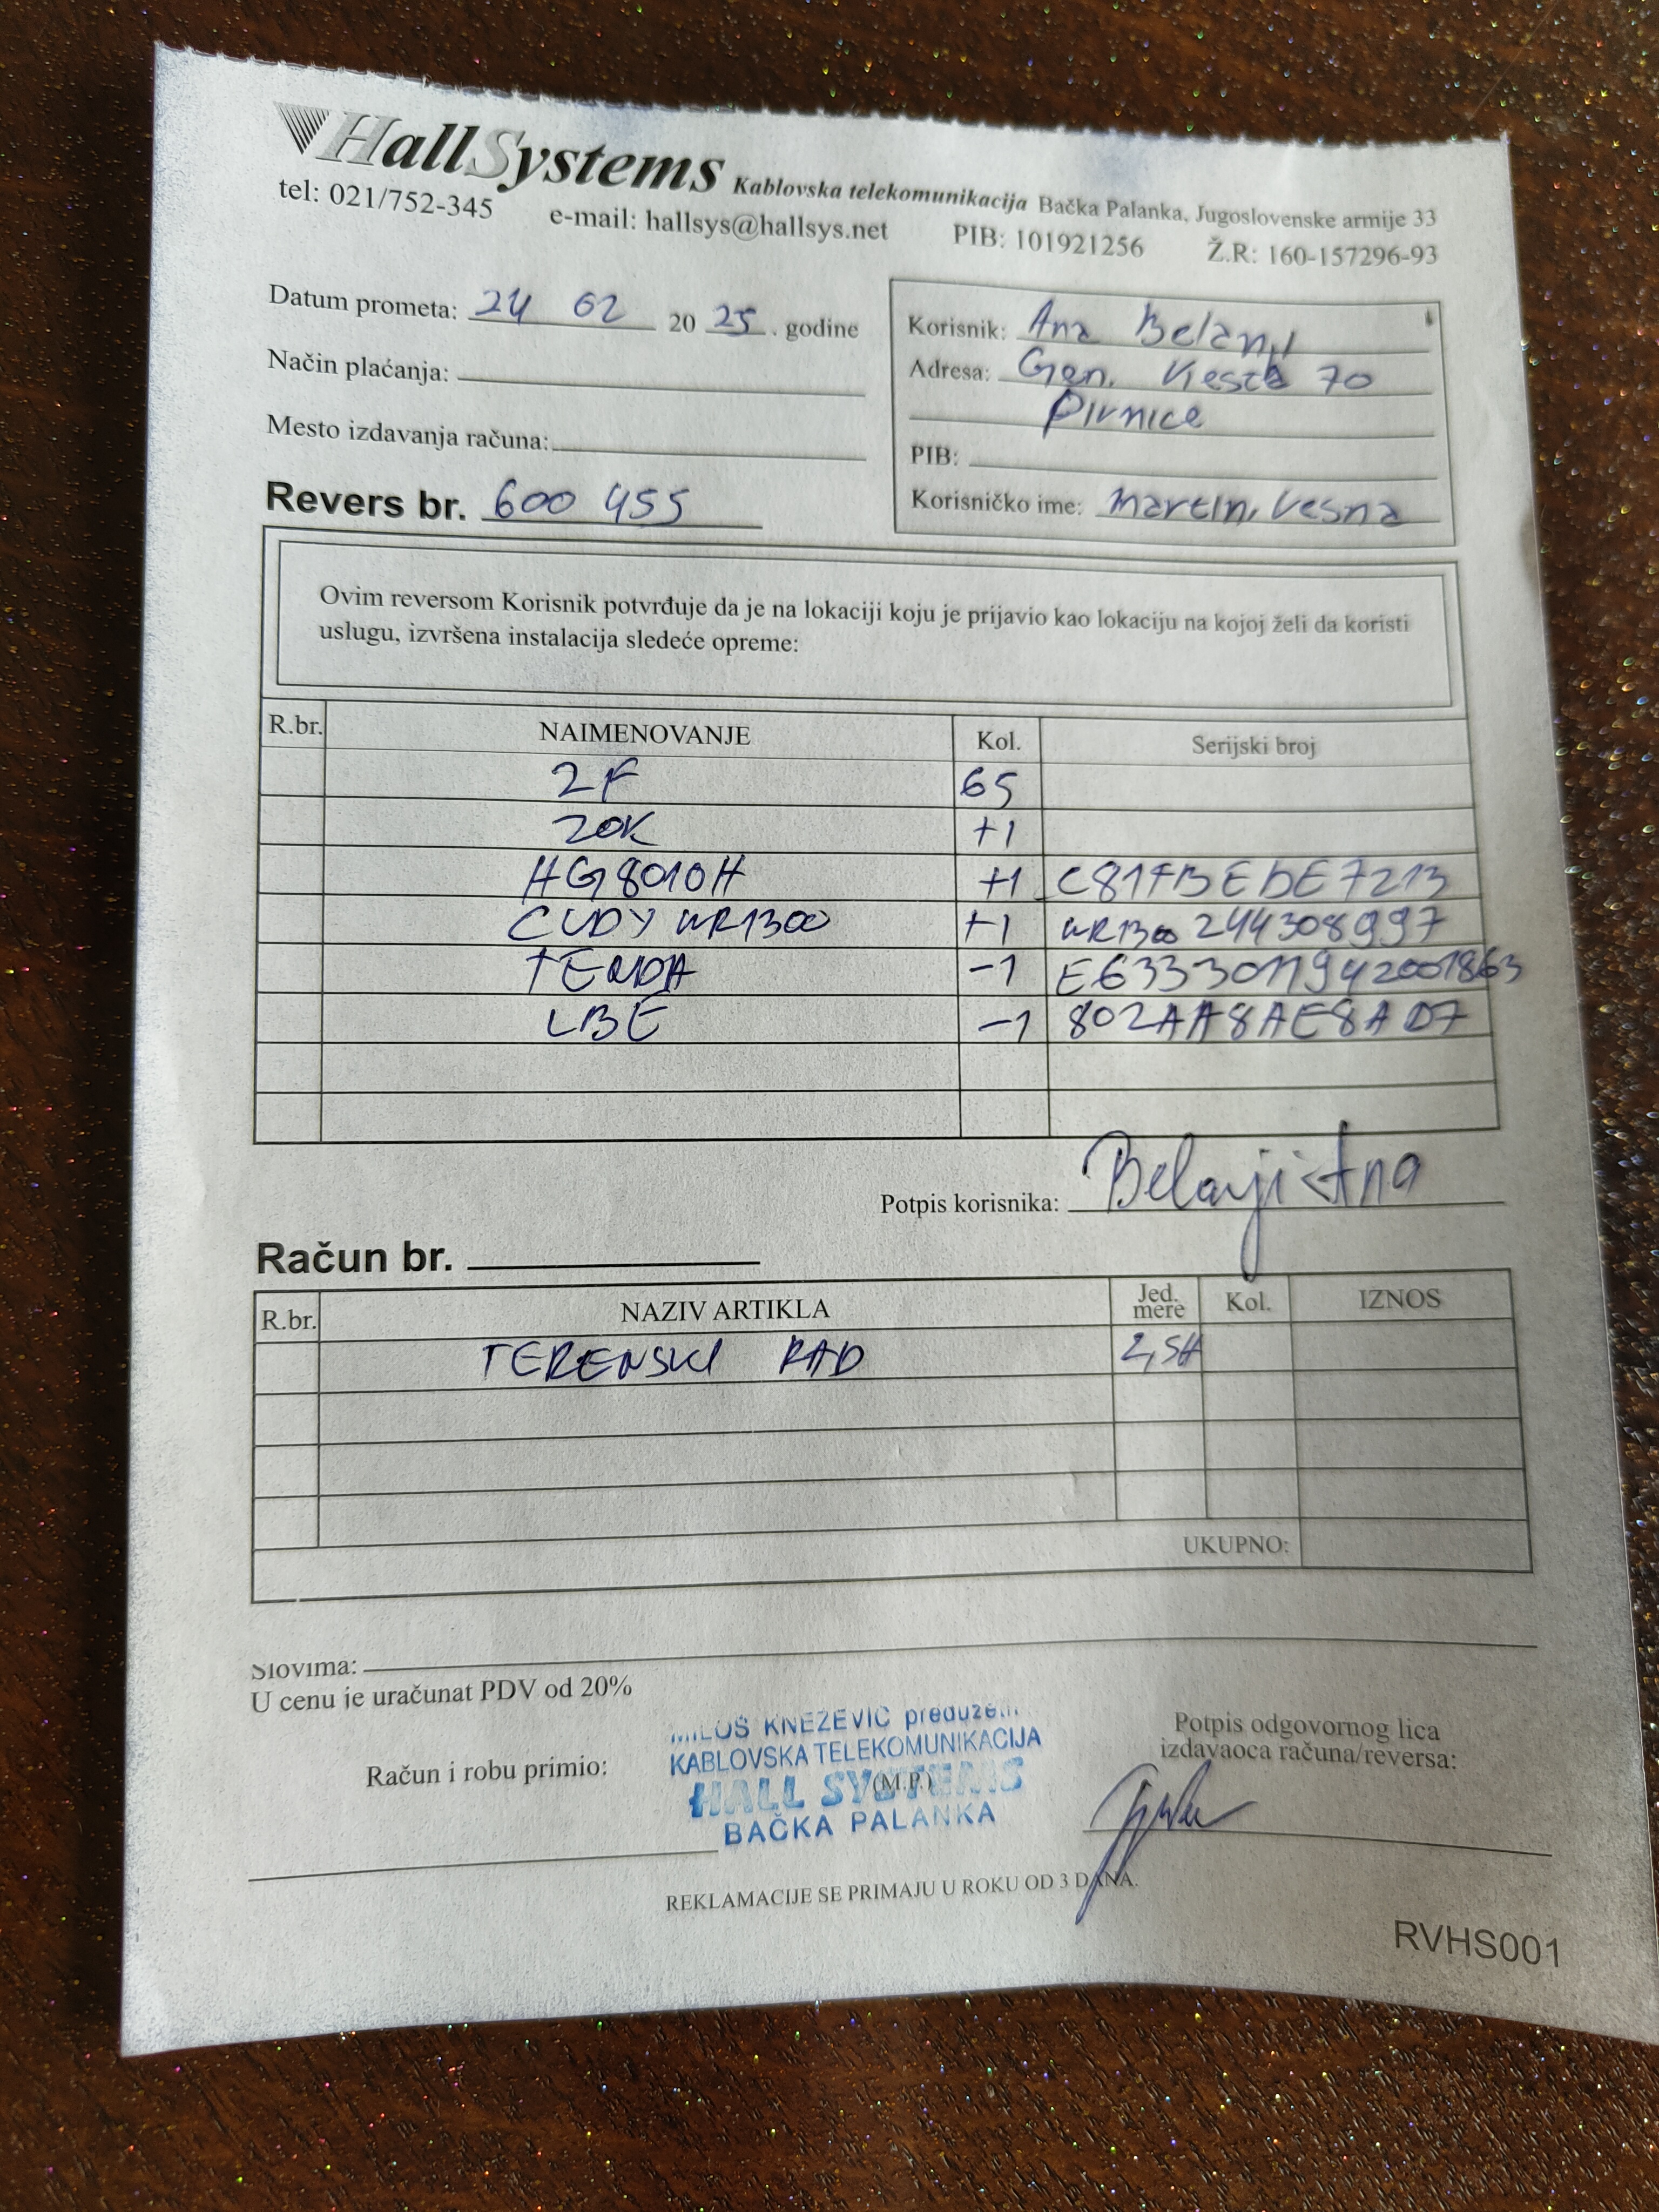 HallSystems Kablovska telekomunikacija Bačka Palanka, Jugoslovenske armije 33
tel: 021/752-345 e-mail: hallsys@hallsys.net PIB: 101921256 Ž.R: 160-157296-93
Datum prometa: 24 02 2025. godine
Način plaćanja:
Mesto izdavanja računa:
Revers br. 600 455
Korisnik: Ana
Adresa: Gen. 70
Pivnice
PIB:
Korisničko ime: Martin, Vesna
Ovim reversom Korisnik potvrđuje da je na lokaciji koju je prijavio kao lokaciju na kojoj želi da koristi
uslugu, izvršena instalacija sledeće opreme:
R.br. NAIMENOVANJE Kol. Serijski broj
2F 65
20K +1
HG8010H +1 C81FBEDE7213
CUDY WR1300 +1 WR1300 244308997
TENDA -1 E6333011942001863
LBE -1 802AA8AE8AD7
Potpis korisnika: Belanji Ana
Račun br.
R.br. NAZIV ARTIKLA Jed. mere Kol. IZNOS
TERENSKI RAD 2,5H
UKUPNO:
Slovima:
U cenu je uračunat PDV od 20%
Račun i robu primio:
MILOŠ KNEŽEVIĆ
KABLOVSKA TELEKOMUNIKACIJA
HALL SYSTEMS
(M.P.)
BAČKA PALANKA
Potpis odgovornog lica
izdavaoca računa/reversa:
REKLAMACIJE SE PRIMAJU U ROKU OD 3 DANA.
RVHS001